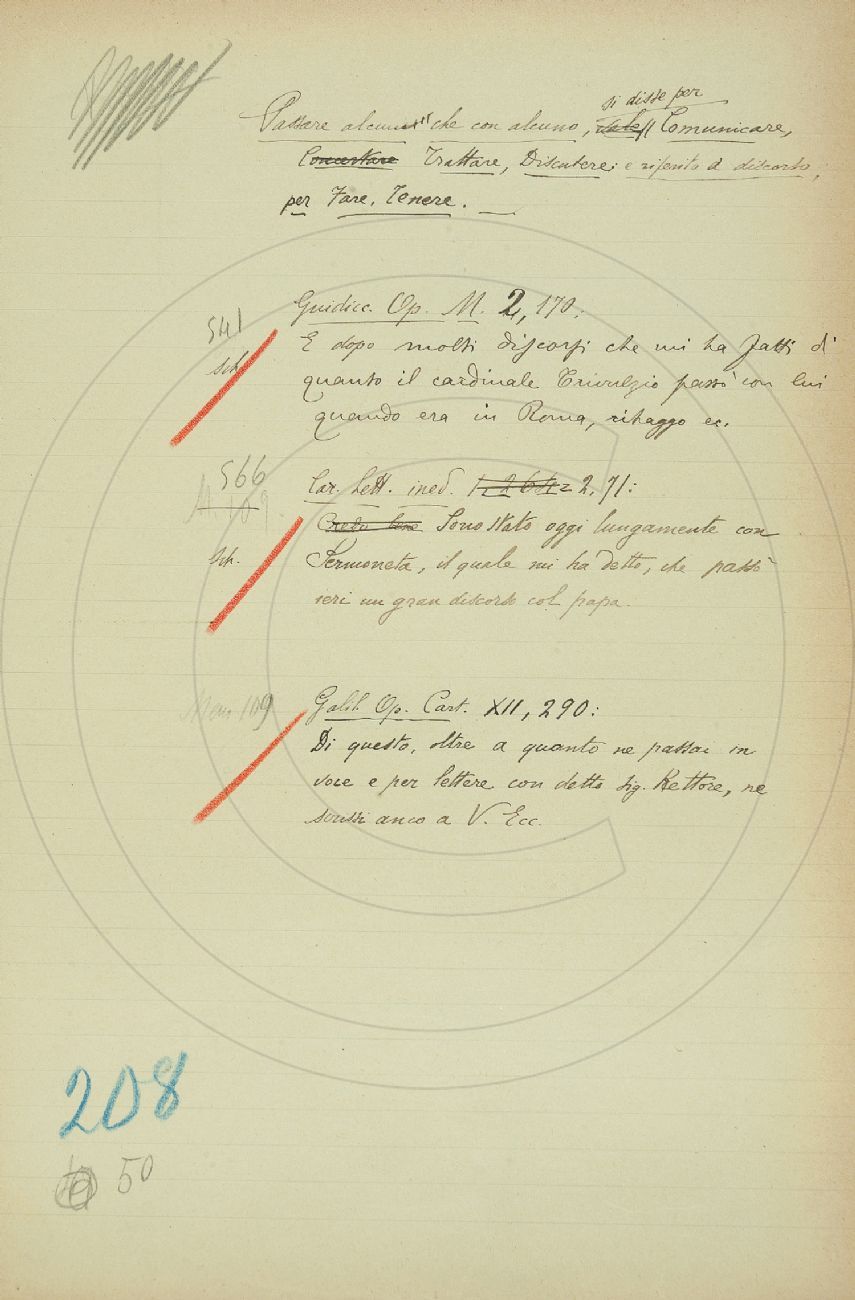 si disse per
Passare alcun che con alcuno, vale Comunicare,
Concertare Trattare, Discutere; e riferito a discorso,
per Fare, Tenere.
Guidicc. Op. M. 2, 170:
541
E dopo molti discorsi che mi ha fatti di
Sch.
quanto il cardinale Trivulzio passò con lui
quando era in Roma, ritraggo ec.
566
Car. Lett. ined. 2, 71:
Credo bene Sono stato oggi lungamente con
Sch.
Sermoneta, il quale mi ha detto, che passò
ieri un gran discorso col papa.
Man 109
Galil. Op. Cart. XII, 290:
Di questo, oltre a quanto ne passai in
voce e per lettere con detto sig. Rettore, ne
scrissi anco a V. Ecc.
208
50